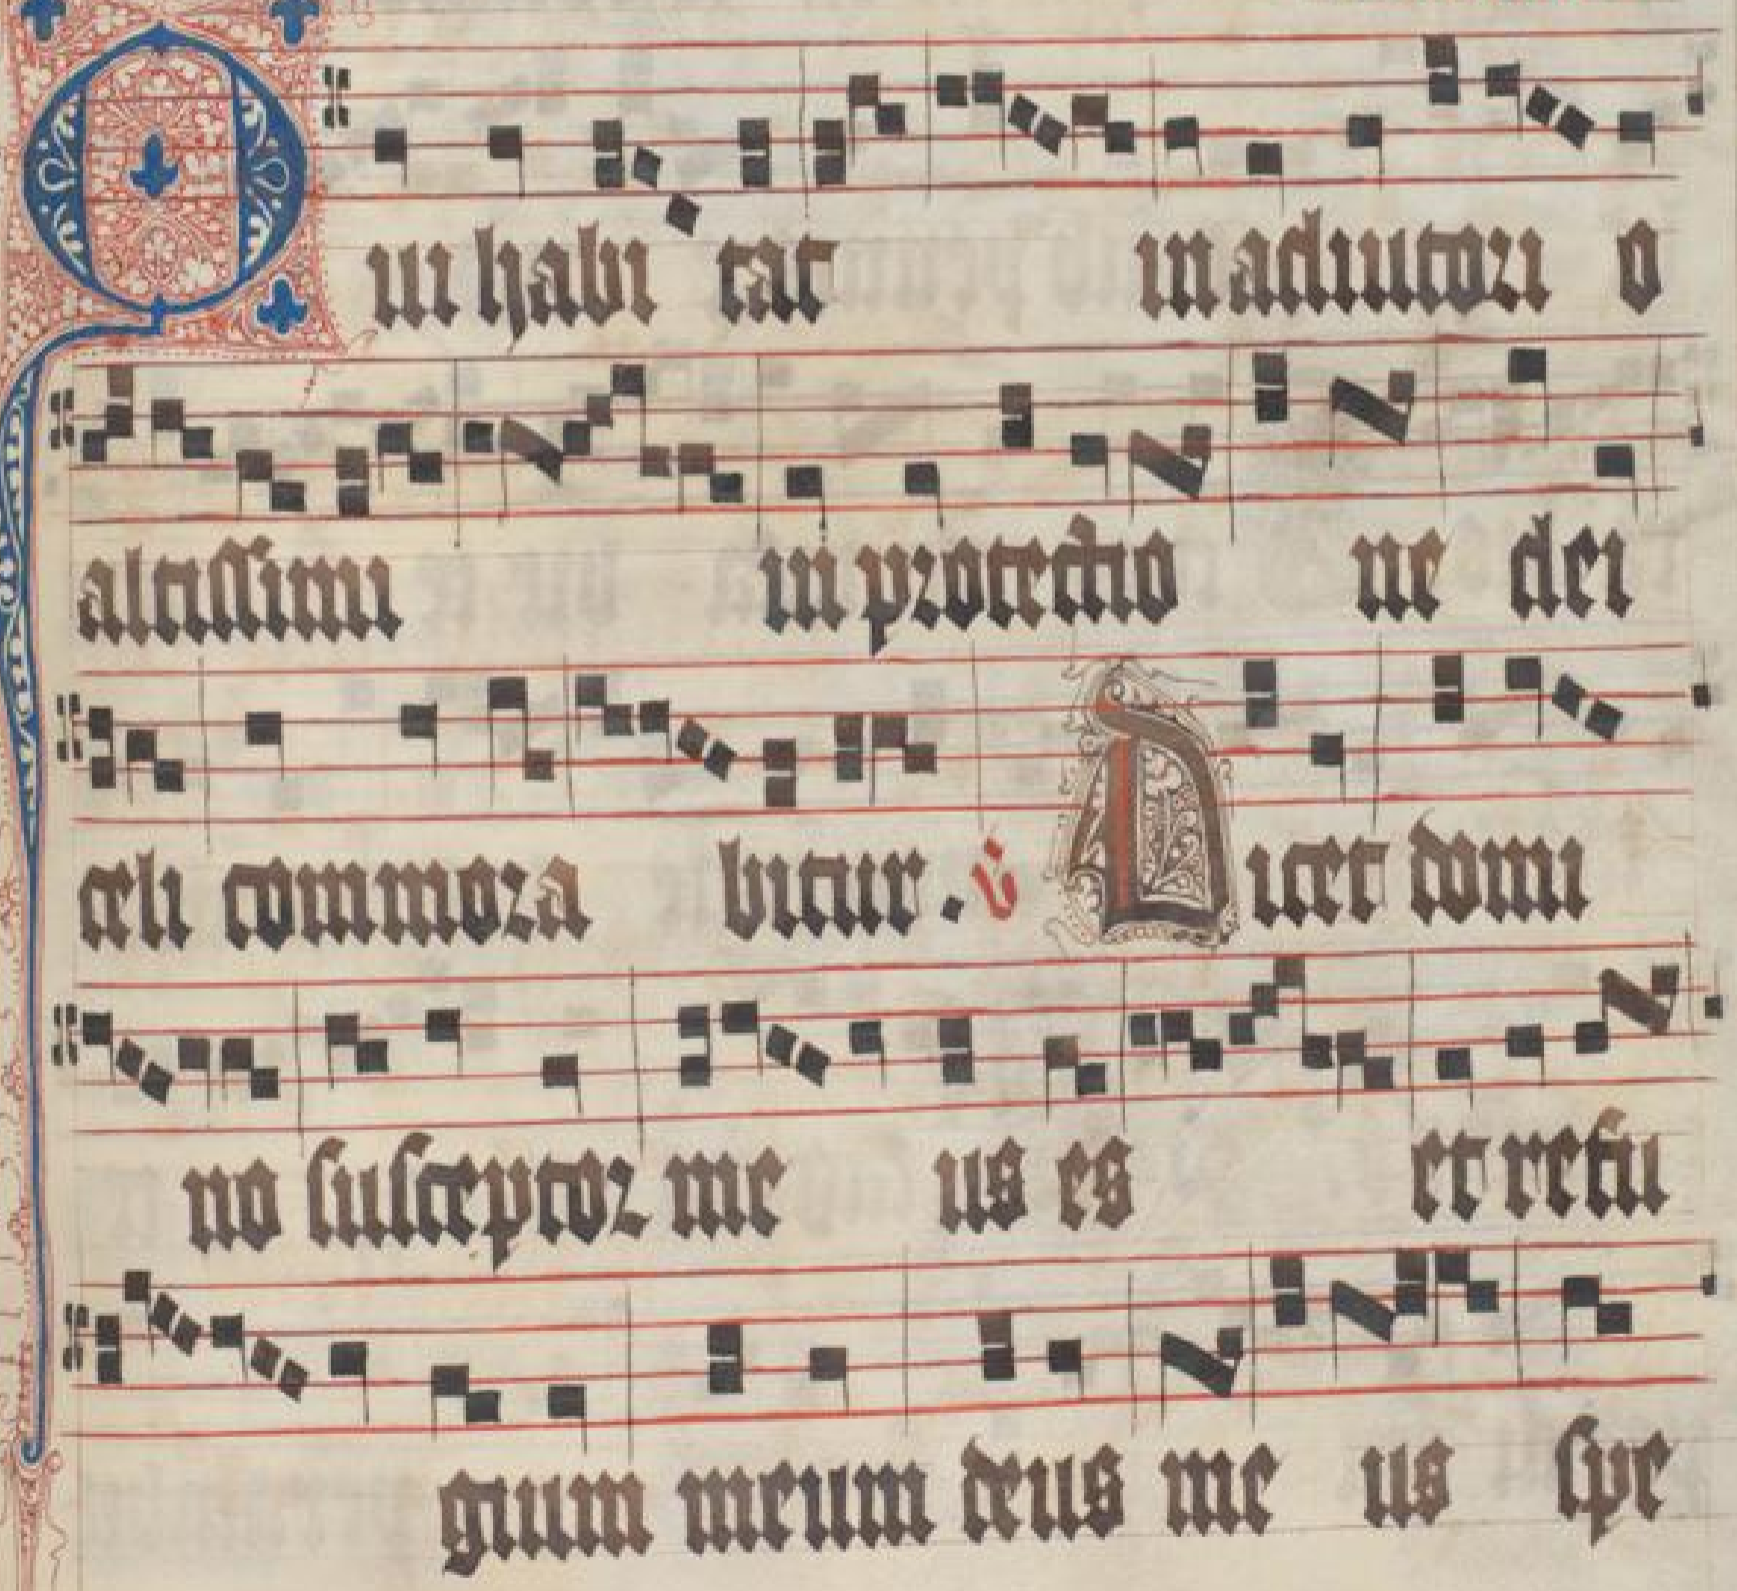 Qui habi tat in adiutori o
altissimi in protectio ne dei
celi commora bitur. ℣ Dicet domi
no susceptor me us es et refu
gium meum deus me us spe